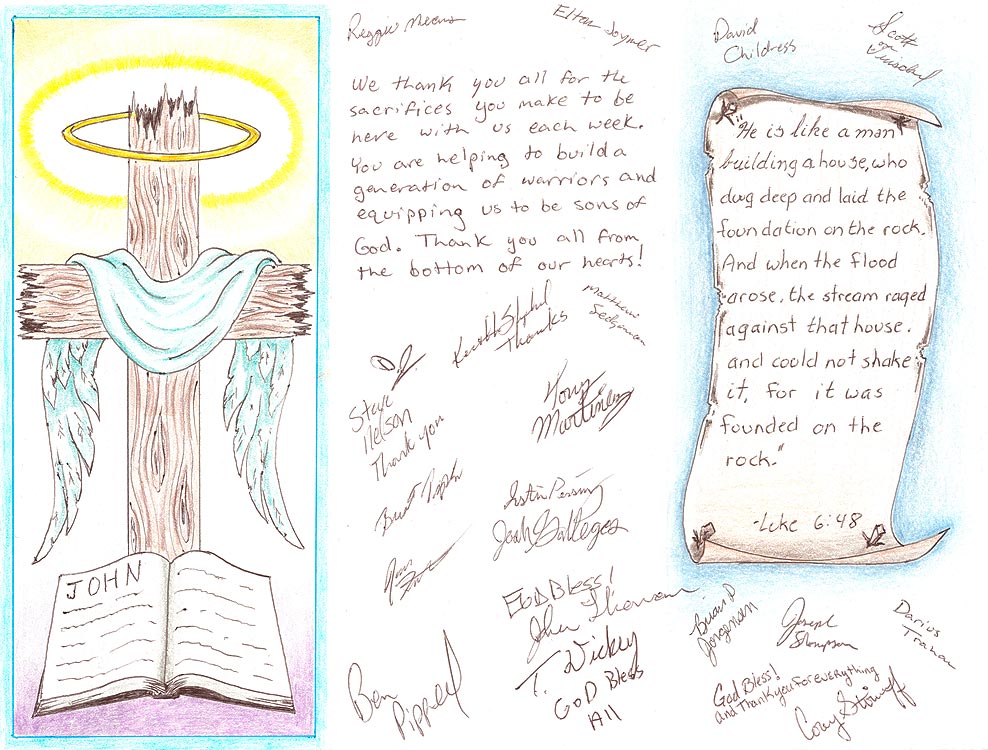 JOHN
Reggie Means
Elton Joymer
We thank you all for the
sacrifices you make to be
here with us each week.
You are helping to build a
generation of warriors and
equipping us to be sons of
God. Thank you all from
the bottom of our hearts!
Thanks
Matthew
Steve
Nelson
Thank you
Tony
Martinez
Justin Persing
Josh Gallegos
God Bless!
T. Wickey
God Bless
All
Ben
Pippel
David
Childress
Scott
"He is like a man
building a house, who
dug deep and laid the
foundation on the rock.
And when the flood
arose, the stream raged
against that house.
and could not shake
it, for it was
founded on the
rock."
-Luke 6:48
Brian D
Jorgensen
Joseph
Thompson
Darius
God Bless!
and Thank you for everything
Cory